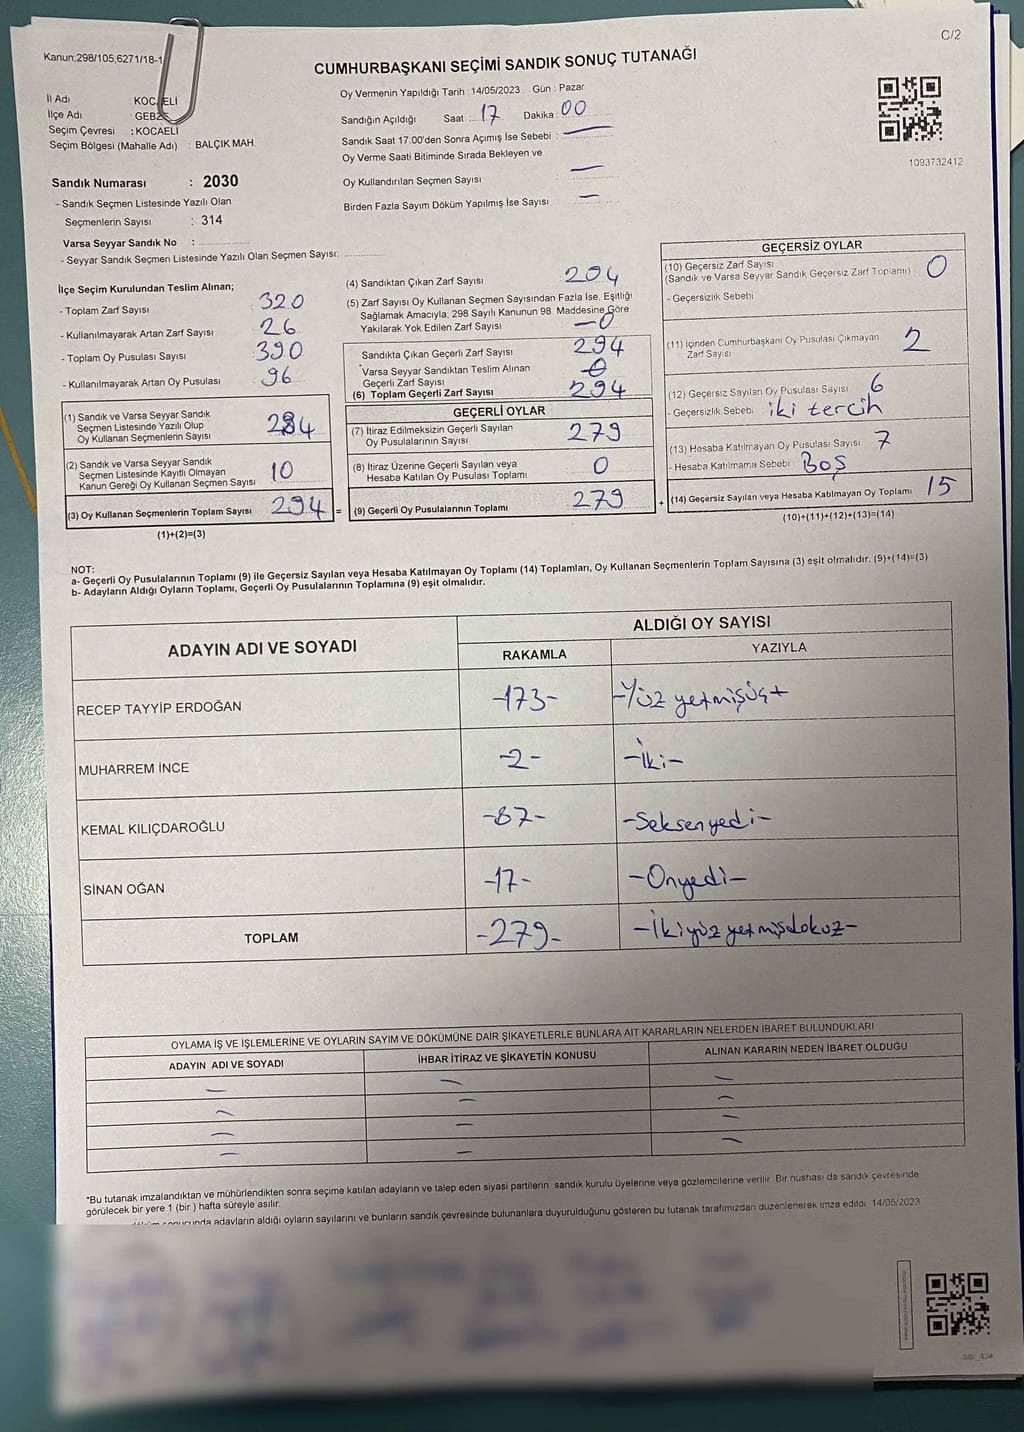 C/2
Kanun:298/105,6271/18-1
CUMHURBAŞKANI SEÇİMİ SANDIK SONUÇ TUTANAĞI
İl Adı : KOCAELİ
İlçe Adı : GEBZE
Seçim Çevresi : KOCAELİ
Seçim Bölgesi (Mahalle Adı) : BALÇIK MAH.
Oy Vermenin Yapıldığı Tarih : 14/05/2023 Gün : Pazar
Sandığın Açıldığı Saat : 17 Dakika : 00
Sandık Saat 17.00'den Sonra Açımış İse Sebebi :
Oy Verme Saati Bitiminde Sırada Bekleyen ve
Oy Kullandırılan Seçmen Sayısı —
Birden Fazla Sayım Döküm Yapılmış İse Sayısı —
1093732412
Sandık Numarası : 2030
- Sandık Seçmen Listesinde Yazılı Olan
Seçmenlerin Sayısı : 314
Varsa Seyyar Sandık No :
- Seyyar Sandık Seçmen Listesinde Yazılı Olan Seçmen Sayısı:
İlçe Seçim Kurulundan Teslim Alınan;
- Toplam Zarf Sayısı 320
- Kullanılmayarak Artan Zarf Sayısı 26
- Toplam Oy Pusulası Sayısı 390
- Kullanılmayarak Artan Oy Pusulası 96
(1) Sandık ve Varsa Seyyar Sandık
Seçmen Listesinde Yazılı Olup
Oy Kullanan Seçmenlerin Sayısı 284
(2) Sandık ve Varsa Seyyar Sandık
Seçmen Listesinde Kayıtlı Olmayan
Kanun Gereği Oy Kullanan Seçmen Sayısı 10
(3) Oy Kullanan Seçmenlerin Toplam Sayısı 294 =
(1)+(2)=(3)
(4) Sandıktan Çıkan Zarf Sayısı 294
(5) Zarf Sayısı Oy Kullanan Seçmen Sayısından Fazla İse, Eşitliği
Sağlamak Amacıyla, 298 Sayılı Kanunun 98. Maddesine Göre
Yakılarak Yok Edilen Zarf Sayısı —0
Sandıkta Çıkan Geçerli Zarf Sayısı 294
Varsa Seyyar Sandıktan Teslim Alınan
Geçerli Zarf Sayısı 0
(6) Toplam Geçerli Zarf Sayısı 294
GEÇERLİ OYLAR
(7) İtiraz Edilmeksizin Geçerli Sayılan
Oy Pusulalarının Sayısı 279
(8) İtiraz Üzerine Geçerli Sayılan veya
Hesaba Katılan Oy Pusulası Toplamı 0
(9) Geçerli Oy Pusulalarının Toplamı 279 +
GEÇERSİZ OYLAR
(10) Geçersiz Zarf Sayısı
(Sandık ve Varsa Seyyar Sandık Geçersiz Zarf Toplamı) 0
- Geçersizlik Sebebi
(11) İçinden Cumhurbaşkanı Oy Pusulası Çıkmayan
Zarf Sayısı 2
(12) Geçersiz Sayılan Oy Pusulası Sayısı 6
- Geçersizlik Sebebi iki tercih
(13) Hesaba Katılmayan Oy Pusulası Sayısı 7
- Hesaba Katılmama Sebebi BOŞ
(14) Geçersiz Sayılan veya Hesaba Katılmayan Oy Toplamı 15
(10)+(11)+(12)+(13)=(14)
NOT:
a- Geçerli Oy Pusulalarının Toplamı (9) ile Geçersiz Sayılan veya Hesaba Katılmayan Oy Toplamı (14) Toplamları, Oy Kullanan Seçmenlerin Toplam Sayısına (3) eşit olmalıdır. (9)+(14)=(3)
b- Adayların Aldığı Oyların Toplamı, Geçerli Oy Pusulalarının Toplamına (9) eşit olmalıdır.
ADAYIN ADI VE SOYADI
ALDIĞI OY SAYISI
RAKAMLA YAZIYLA
RECEP TAYYİP ERDOĞAN -173- -Yüz yetmişüç-
MUHARREM İNCE -2- -İki-
KEMAL KILIÇDAROĞLU -87- -Seksenyedi-
SİNAN OĞAN -17- -Onyedi-
TOPLAM -279- -İkiyüzyetmişdokuz-
OYLAMA İŞ VE İŞLEMLERİNE VE OYLARIN SAYIM VE DÖKÜMÜNE DAİR ŞİKAYETLERLE BUNLARA AİT KARARLARIN NELERDEN İBARET BULUNDUKLARI
ADAYIN ADI VE SOYADI İHBAR İTİRAZ VE ŞİKAYETİN KONUSU ALINAN KARARIN NEDEN İBARET OLDUĞU
*Bu tutanak imzalandıktan ve mühürlendikten sonra seçime katılan adayların ve talep eden siyasi partilerin sandık kurulu üyelerine veya gözlemcilerine verilir. Bir nushası da sandık çevresinde
görülecek bir yere 1 (bir ) hafta süreyle asılır.
adayların aldığı oyların sayılarını ve bunların sandık çevresinde bulunanlara duyurulduğunu gösteren bu tutanak tarafımızdan düzenlenerek imza edildi. 14/05/2023